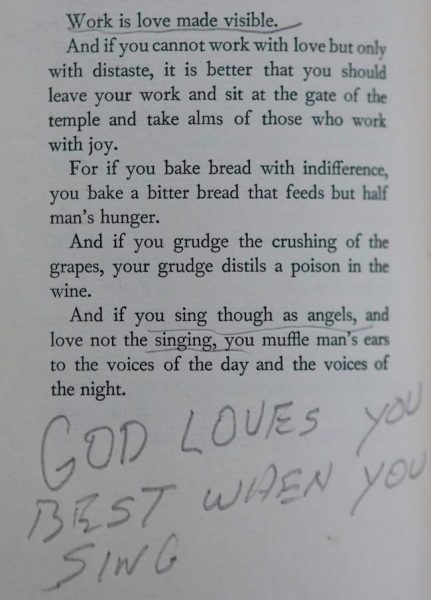 Work is love made visible.
And if you cannot work with love but only
with distaste, it is better that you should
leave your work and sit at the gate of the
temple and take alms of those who work
with joy.
For if you bake bread with indifference,
you bake a bitter bread that feeds but half
man's hunger.
And if you grudge the crushing of the
grapes, your grudge distils a poison in the
wine.
And if you sing though as angels, and
love not the singing, you muffle man's ears
to the voices of the day and the voices of
the night.
GOD LOVES YOU
BEST WHEN YOU
SING